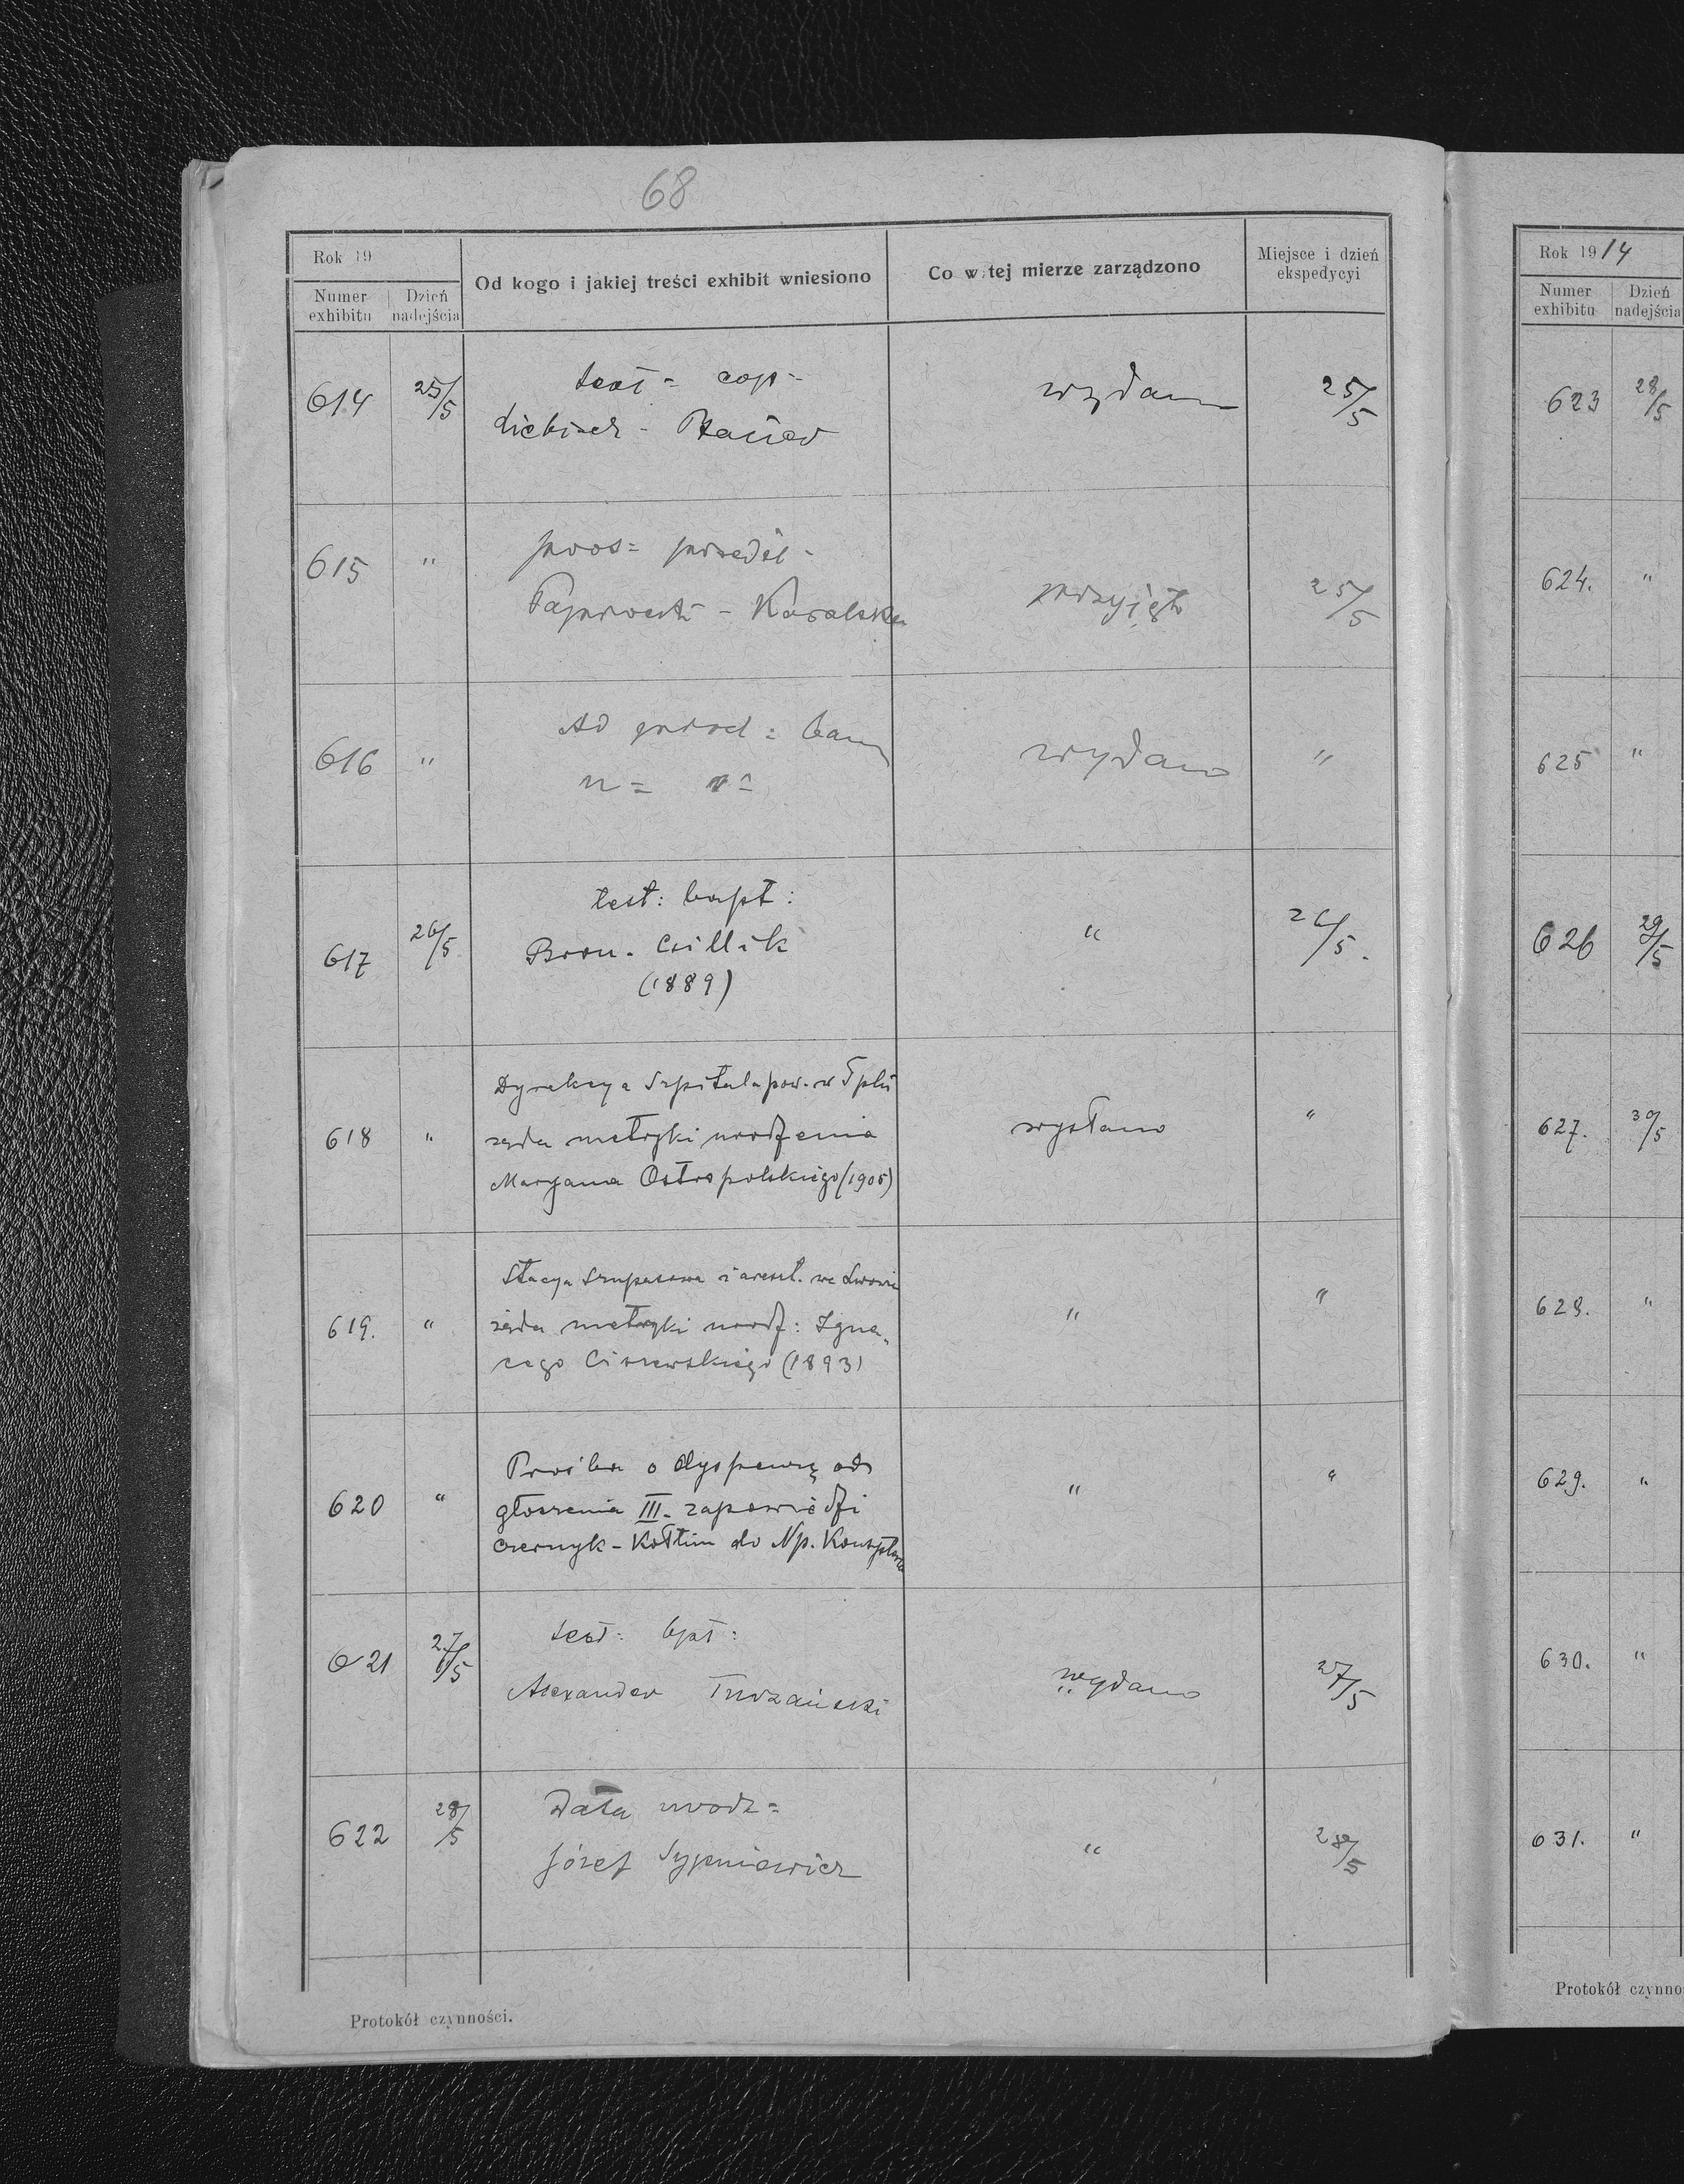 68
Rok 19
Numer exhibitu
Dzień nadejścia
Od kogo i jakiej treści exhibit wniesiono
Co w tej mierze zarządzono
Miejsce i dzień ekspedycyi
614 25/5 test = cop = wydano 25/5
615 "
przyjęto 25/5
616 " Ad wydano "
n =
617 26/5 test: bapt: " 26/5.
Bron. Csillik
(1889)
618 " Dyrekcya Szpitala pow. w Tplu wysłano "
żąda metryki urodzenia
Maryana Ostropolskiego (1905)
619. " Stacya Szupasowa i areszt. we Lwowie " "
żąda metryki urodz: Igna-
cego Ciszewskiego (1893)
620 " Prośba o dyspensę od " "
głoszenia III. zapowiedzi
Czernyk - Kottim do Np. Konsystorza
621 27/5 test: bpt: wydano 27/5
Alexander Turzański
622 28/5 Data urodz = " 28/5
Józef Sypniewicz
Protokół czynności.
Rok 1914
Numer exhibitu
Dzień nadejścia
623 28/5
624. "
625 "
626 29/5
627. 30/5
628. "
629. "
630. "
631. "
Protokół czynno